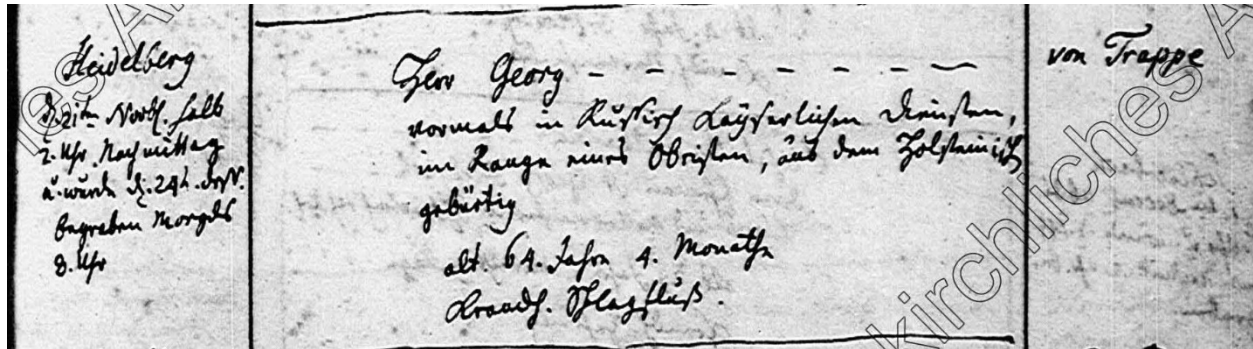 Heidelberg
d. 21ten Novb. halb
2. Uhr Nachmittag
u. wurde d. 24t. dess.
begraben Morgds
8. Uhr
Herr Georg - - - - - - - -
vormals in Russisch Kayserlichen Diensten,
im Range eines Obristen, aus dem Holsteinisch
gebürtig
alt. 64. Jahre 4. Monathe
Krankh. Schlagfluß.
von Trappe
kirchliches A